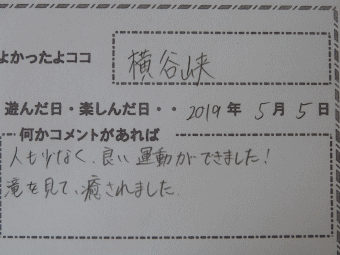 よかったよココ 横谷峡
遊んだ日・楽しんだ日・・ 2019 年 5 月 5 日
何かコメントがあれば
人も少なく、良い運動ができました!
滝を見て、癒されました